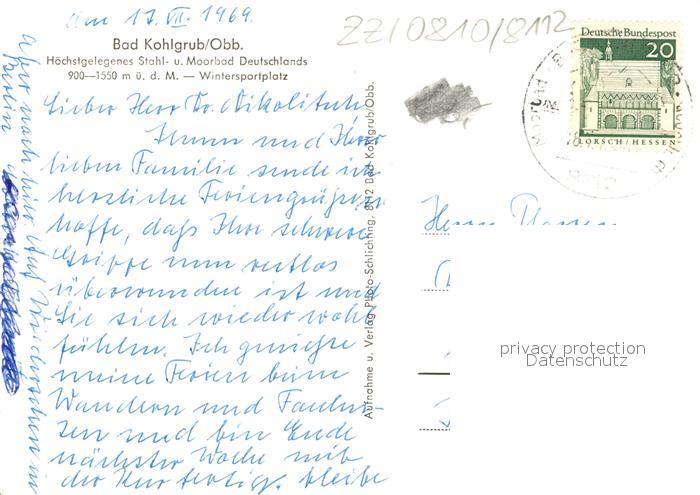 am 17. VII. 1969.
ZZ/0810/8112
Bad Kohlgrub/Obb.
Höchstgelegenes Stahl- u. Moorbad Deutschlands
900—1550 m ü. d. M. — Wintersportplatz
Lieber Herr Dr.
Ihnen und Ihrer
lieben Familie sende ich
herzliche Feriengrüße,
hoffe, daß Ihre schwere
Grippe nun restlos
überwunden ist und
Sie sich wieder wohl
fühlen. Ich genieße
meine Ferien beim
Wandern und Faulen-
zen und bin Ende
nächster Woche mit
der Kur fertig, bleibe
aber noch hier. Auf Wiedersehen in
Aufnahme u. Verlag Photo-Schlichting, 8112 Bad Kohlgrub/Obb.
Deutsche Bundespost
20
LORSCH/HESSEN
8112
Herrn
privacy protection
Datenschutz